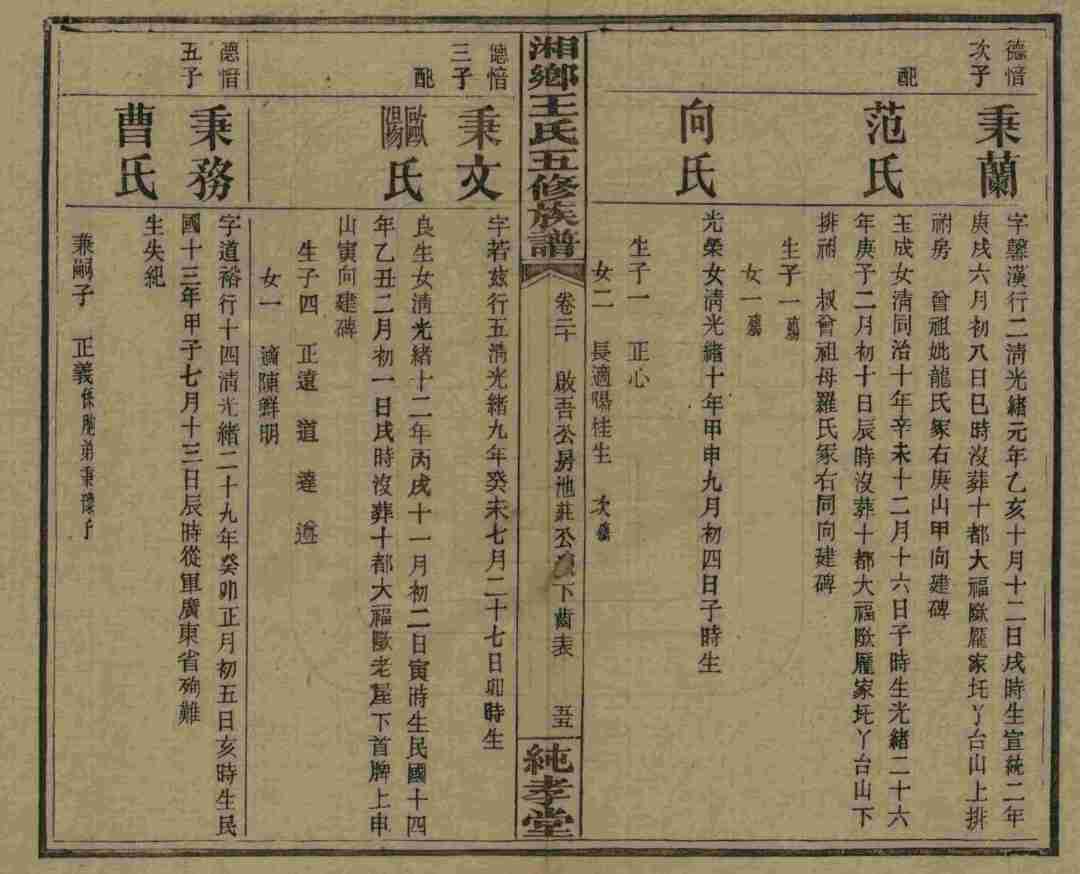 德愔
次子
秉蘭
字馨漢行二清光緒元年乙亥十月十二日戌時生宣統二年
庚戌六月初八日巳時沒葬十都大福歐龎家圫丫台山上排
祔房 曾祖妣龍氏冢右庚山甲向建碑
配
范氏
玉成女清同治十年辛未十二月十六日子時生光緒二十六
年庚子二月初十日辰時沒葬十都大福歐龎家圫丫台山下
排祔 叔曾祖母羅氏冢右同向建碑
生子一殤
女一殤
向氏
光榮女清光緒十年甲申九月初四日子時生
生子一 正心
女二 長適陽桂生 次殤
湘鄉王氏五修族譜
卷二十 啟吾公房池莊公 下齒表
純孝堂
德愔
三子
秉文
字若茲行五清光緒九年癸未七月二十七日卯時生
配
歐陽氏
良生女清光緒十二年丙戌十一月初二日寅時生民國十四
年乙丑二月初一日戌時沒葬十都大福歐老屋下首牌上申
山寅向建碑
生子四 正遠 道 達 道
女一 適陳鮮明
德愔
五子
秉務
字道裕行十四清光緒二十九年癸卯正月初五日亥時生民
國十三年甲子七月十三日辰時從軍廣東省殉難
曹氏
生失紀
兼嗣子 正義係胞弟秉 子